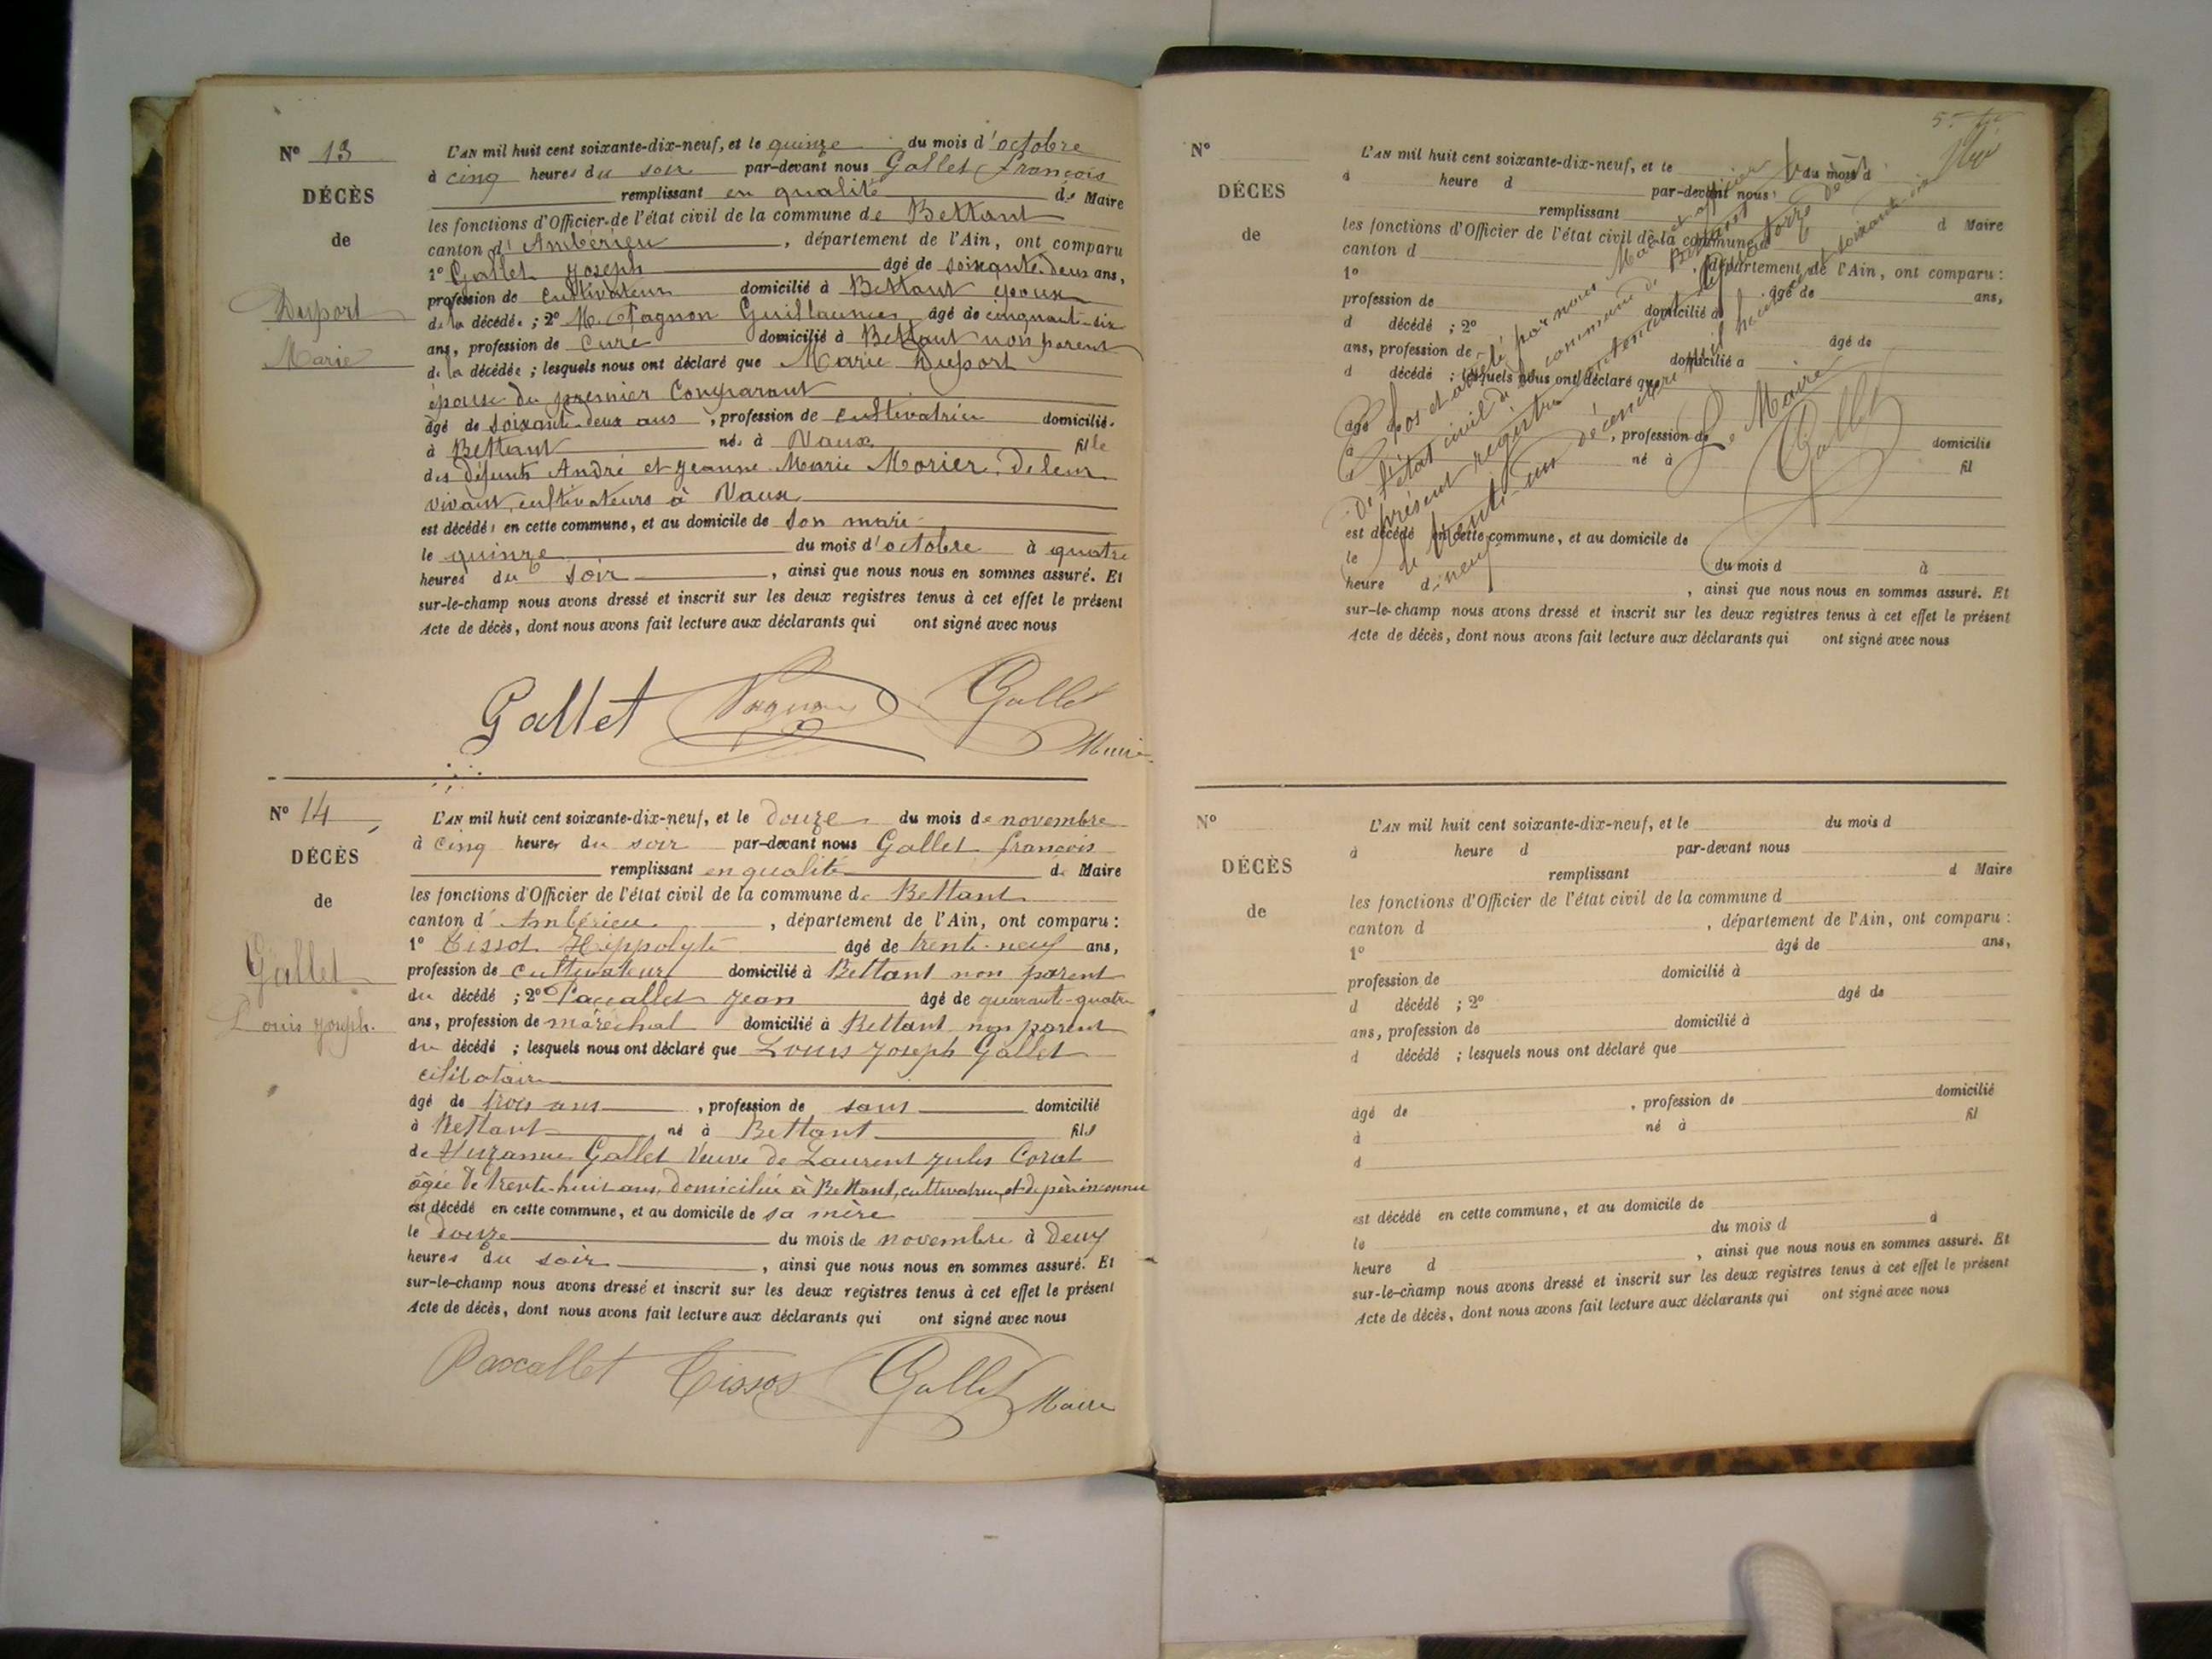 Nº 13
DÉCÈS
de
Duport
Marie
L'AN mil huit cent soixante-dix-neuf, et le quinze du mois d'octobre
à cinq heures du soir par-devant nous Gallet françois
remplissant en qualité de Maire
les fonctions d'Officier de l'état civil de la commune de Bettant
canton d'Ambérieu, département de l'Ain, ont comparu
1º Gallet Joseph âgé de soixante-deux ans,
profession de cultivateur domicilié à Bettant époux
de la décédée ; 2º M. Guillaume âgé de cinquante-six
ans, profession de Curé domicilié à Bettant non parent
de la décédée ; lesquels nous ont déclaré que Marie Duport
épouse du premier Comparant
âgé de soixante deux ans, profession de cultivatrice domicilié
à Bettant née à Vaux fille
des défunts André et Jeanne Marie Morier, de leur
vivant, cultivateurs à Vaux
est décédé en cette commune, et au domicile de son mari
le quinze du mois d'octobre à quatre
heures du soir, ainsi que nous nous en sommes assuré. Et
sur-le-champ nous avons dressé et inscrit sur les deux registres tenus à cet effet le présent
Acte de décès, dont nous avons fait lecture aux déclarants qui ont signé avec nous
Gallet Gallet
Maire
Nº 14
DÉCÈS
de
Gallet
Louis Joseph.
L'AN mil huit cent soixante-dix-neuf, et le douze du mois de novembre
à cinq heures du soir par-devant nous Gallet françois
remplissant en qualité de Maire
les fonctions d'Officier de l'état civil de la commune de Bettant
canton d'Ambérieu, département de l'Ain, ont comparu :
1º Tissot Hippolyte âgé de trente-neuf ans,
profession de cultivateur domicilié à Bettant non parent
du décédé ; 2º Paccallet Jean âgé de quarante-quatre
ans, profession de maréchal domicilié à Bettant non parent
du décédé ; lesquels nous ont déclaré que Louis Joseph Gallet
célibataire
âgé de trois ans, profession de sans domicilié
à Bettant né à Bettant fils
de Suzanne Gallet Veuve de Laurent Jules
âgée de trente-huit ans, domiciliée à Bettant, cultivatrice, et de père inconnu
est décédé en cette commune, et au domicile de sa mère
le douze du mois de novembre à deux
heures du soir, ainsi que nous nous en sommes assuré. Et
sur-le-champ nous avons dressé et inscrit sur les deux registres tenus à cet effet le présent
Acte de décès, dont nous avons fait lecture aux déclarants qui ont signé avec nous
Paccallet Tissot Gallet Maire
Nº
DÉCES
de
L'AN mil huit cent soixante-dix-neuf, et le du mois d
à heure d par-devant nous
remplissant d Maire
les fonctions d'Officier de l'état civil de la commune d
canton d, département de l'Ain, ont comparu :
1º âgé de ans,
profession de domicilié à
d décédé ; 2º âgé de
ans, profession de domicilié à
d décédé ; lesquels nous ont déclaré que
âgé de, profession de domicilié
à né à fil
est décédé en cette commune, et au domicile de
le du mois d à
heure d, ainsi que nous nous en sommes assuré. Et
sur-le-champ nous avons dressé et inscrit sur les deux registres tenus à cet effet le présent
Acte de décès, dont nous avons fait lecture aux déclarants qui ont signé avec nous
Clos et arrêté par nous Maire et officier
de l'état civil de la commune de Bettant
présent registre contenant quatorze
le trente-un décembre mil huit cent soixante dix
neuf
Le Maire
Gallet
Nº
DÉCÈS
de
L'AN mil huit cent soixante-dix-neuf, et le du mois d
à heure d par-devant nous
remplissant d Maire
les fonctions d'Officier de l'état civil de la commune d
canton d, département de l'Ain, ont comparu :
1º âgé de ans,
profession de domicilié à
d décédé ; 2º âgé de
ans, profession de domicilié à
d décédé ; lesquels nous ont déclaré que
âgé de, profession de domicilié
à né à fil
d
est décédé en cette commune, et au domicile de
le du mois d à
heure d, ainsi que nous nous en sommes assuré. Et
sur-le-champ nous avons dressé et inscrit sur les deux registres tenus à cet effet le présent
Acte de décès, dont nous avons fait lecture aux déclarants qui ont signé avec nous